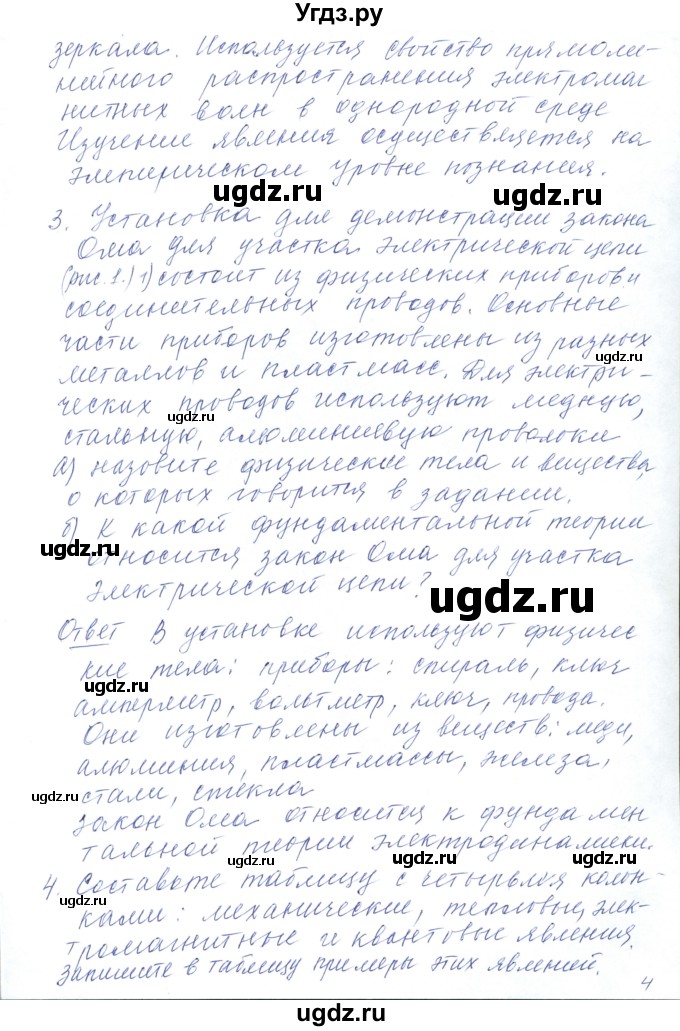 Угдз.ру
зеркала. Используется свойство прямоли-
нейного распространения электромаг
нитных волн в однородной среде
Изучение явления осуществляется на
эмпирическом уровне познания.
ugdz.ru
ugdz.ru
3. Установка для демонстрации закона
Ома для участка электрической цепи
(рис. 1.) 1) состоит из физических приборов и
соединительных проводов. Основные
части приборов изготовлены из разных
металлов и пластмасс. Для электри-
ugdz.ru
ческих проводов используют медную,
ugdz.ru
стальную, алюминиевую проволоки
а) назовите физические тела и вещества,
о которых говорится в задании.
б) К какой фундаментальной теории
ugdz.ru
относится закон Ома для участка
электрической цепи?
ugdz.ru
Ответ В установке используют физичес
кие тела: приборы: спираль, ключ
ugdz.ru
амперметр, вольтметр, ключ, провода.
Они изготовлены из веществ: меди,
алюминия, пластмассы, железа,
стали, стекла
ugdz.ru
закон Ома относится к фундамен
тальной теории электродинамики.
ugdz.ru
ugdz.ru
4. Составьте таблицу с четырьмя колон-
ugdz.ru
ками: механические, тепловые, элек-
тромагнитные и квантовые явления.
Запишите в таблицу примеры этих явлений.
4
ugdz.ru